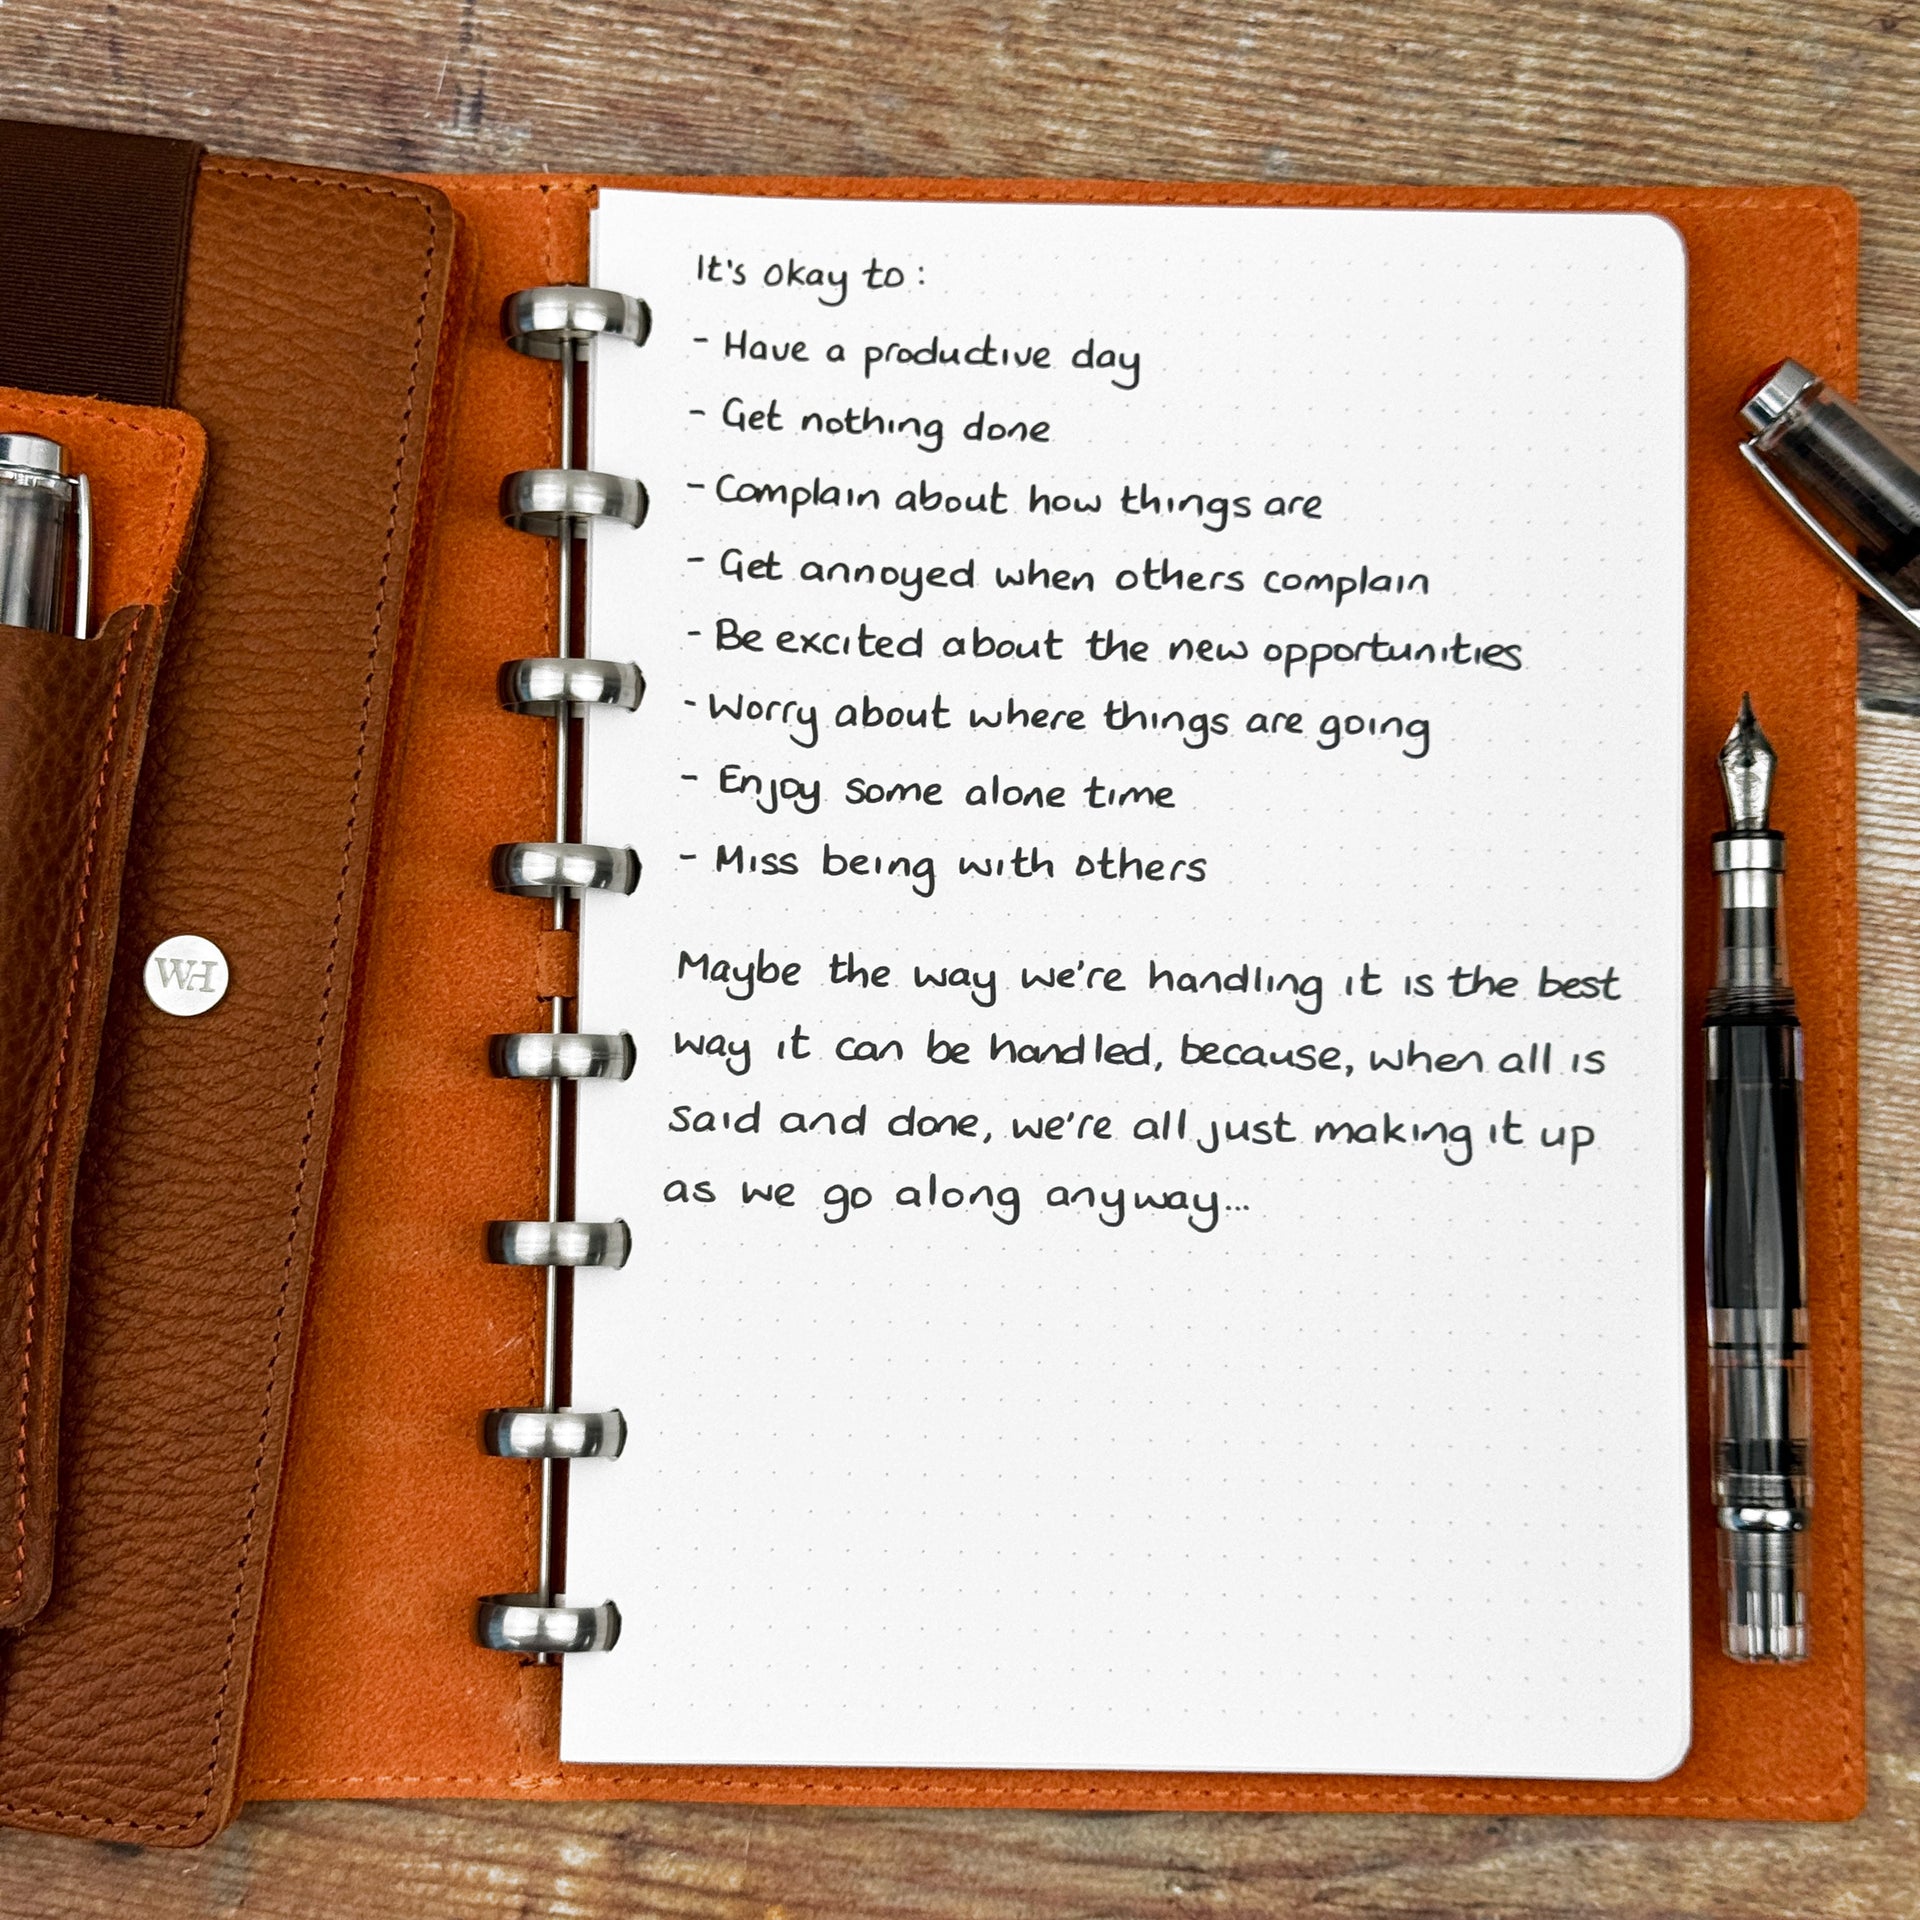 It's okay to:
- Have a productive day
- Get nothing done
- Complain about how things are
- Get annoyed when others complain
- Be excited about the new opportunities
- Worry about where things are going
- Enjoy some alone time
- Miss being with others
Maybe the way we're handling it is the best
way it can be handled, because, when all is
said and done, we're all just making it up
as we go along anyway...
WH